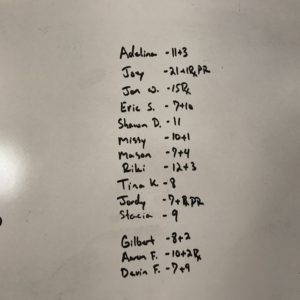 Adelina - 11+3
Joey - 21+1Rx PR
Jon W. - 15Rx
Eric S. - 7+10
Shawn D. - 11
Missy - 10+1
Mason - 7+4
Riki - 12+3
Tina K - 8
Jordy - 7+ PR
Stacia - 9
Gilbert - 8+2
Aaron F. - 10+2Rx
Devin F. - 7+9